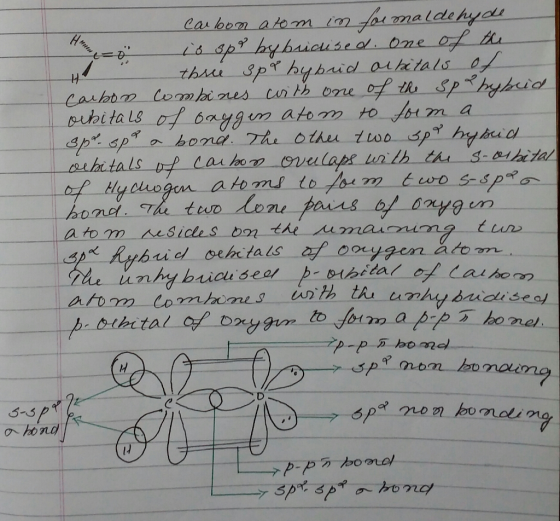 Carbon atom in formaldehyde
is sp² hybridised. One of the
three sp² hybrid orbitals of
Carbon combines with one of the sp² hybrid
orbitals of oxygen atom to form a
sp²-sp² σ bond. The other two sp² hybrid
orbitals of Carbon overlaps with the s-orbital
of Hydrogen atoms to form two s-sp² σ
bond. The two lone pairs of oxygen
atom resides on the remaining two
sp² hybrid orbitals of oxygen atom.
The unhybridised p-orbital of Carbon
atom combines with the unhybridised
p-orbital of oxygen to form a p-p π bond.
H
C=O
H
p-p π bond
sp² non bonding
H
C
O
s-sp²
σ bond
sp² non bonding
H
p-p π bond
sp²-sp² σ bond